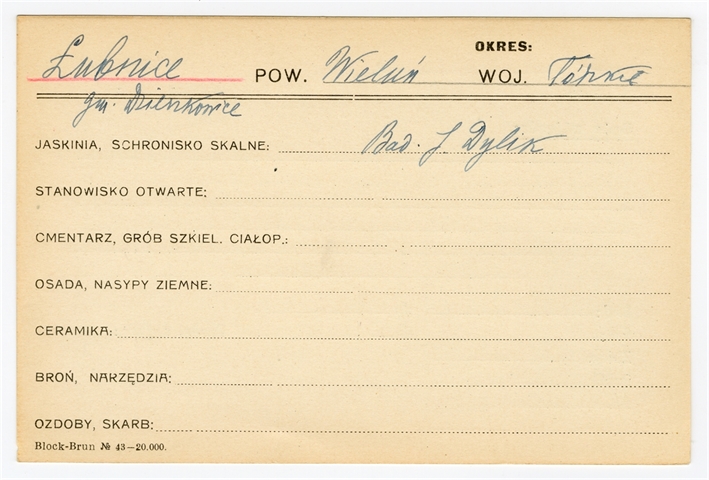 OKRES:
Łubnice POW. Wieluń WOJ. Łódzkie
gm. Dzietrzkowice
JASKINIA, SCHRONISKO SKALNE: Bad. J. Dylik
STANOWISKO OTWARTE:
CMENTARZ, GRÓB SZKIEL. CIAŁOP.:
OSADA, NASYPY ZIEMNE:
CERAMIKA:
BROŃ, NARZĘDZIA:
OZDOBY, SKARB:
Block-Brun № 43—20.000.